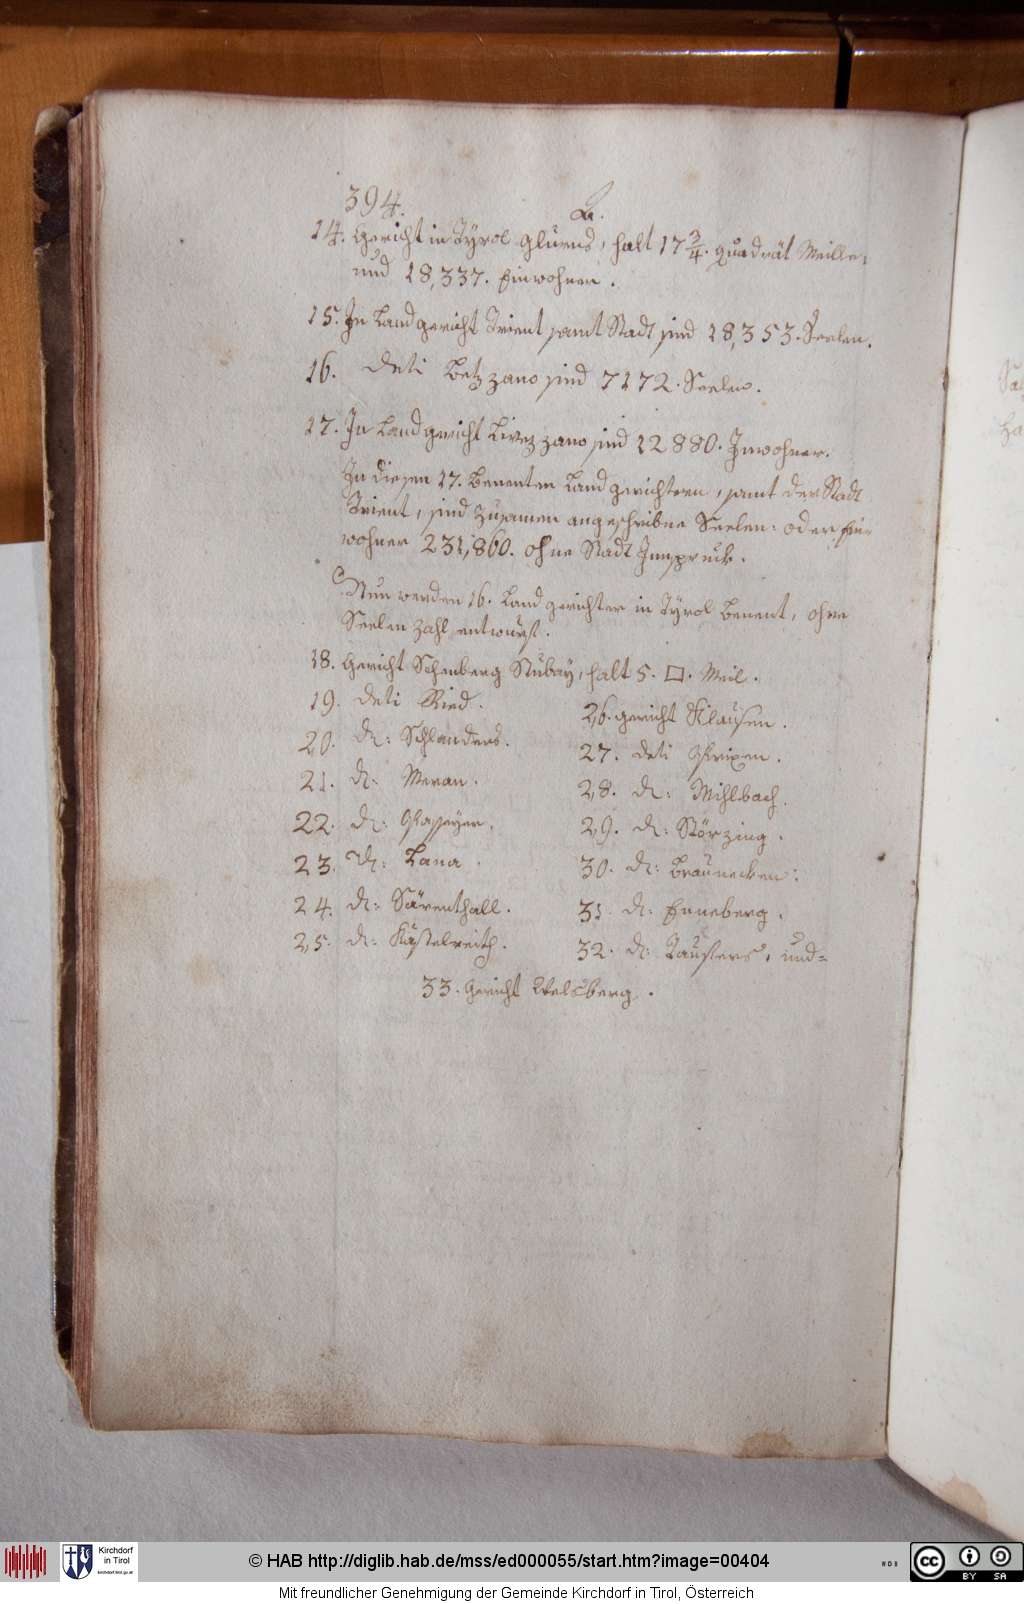 394.
L.
14. Gericht in Tÿrol Glurns, halt 17 3/4. Quadrät Meille,
und 18,337. Einwohner.
15. In Landgericht Trient samt Stadt sind 18,353. Seelen.
16. deti Betzzano sind 7172. Seelen.
17. In Landgericht Livezzano sind 12880. Inwohner.
In diesen 17. Benenten Landgerichtern, samt der Stadt
Trient, sind zusamen angeschribne Seelen: oder Ein-
wohner 231,860. ohne Stadt Innspruck.
Nun werden 16. Landgerichter in Tÿrol Benent, ohne
Seelen zahl entwurft.
18. Gericht Schenberg Stubay, halt 5. □. Meil.
19. deti Ried.
20. dt: Schlanders.
21. dt: Meran.
22. dt: Passeyer.
23. dt: Lana.
24. dt: Särenthall.
25. dt: Kästelreith.
26. Gericht Klausen.
27. deti Prixen.
28. dt: Mihlbach.
29. dt: Störzing.
30. dt: Braunecken:
31. dt: Enneberg.
32. dt: Taufers, und=
33. Gericht Welsberg.
Kirchdorf
in Tirol
kirchdorf.tirol.gv.at
© HAB http://diglib.hab.de/mss/ed000055/start.htm?image=00404
WDB
cc
BY SA
Mit freundlicher Genehmigung der Gemeinde Kirchdorf in Tirol, Österreich